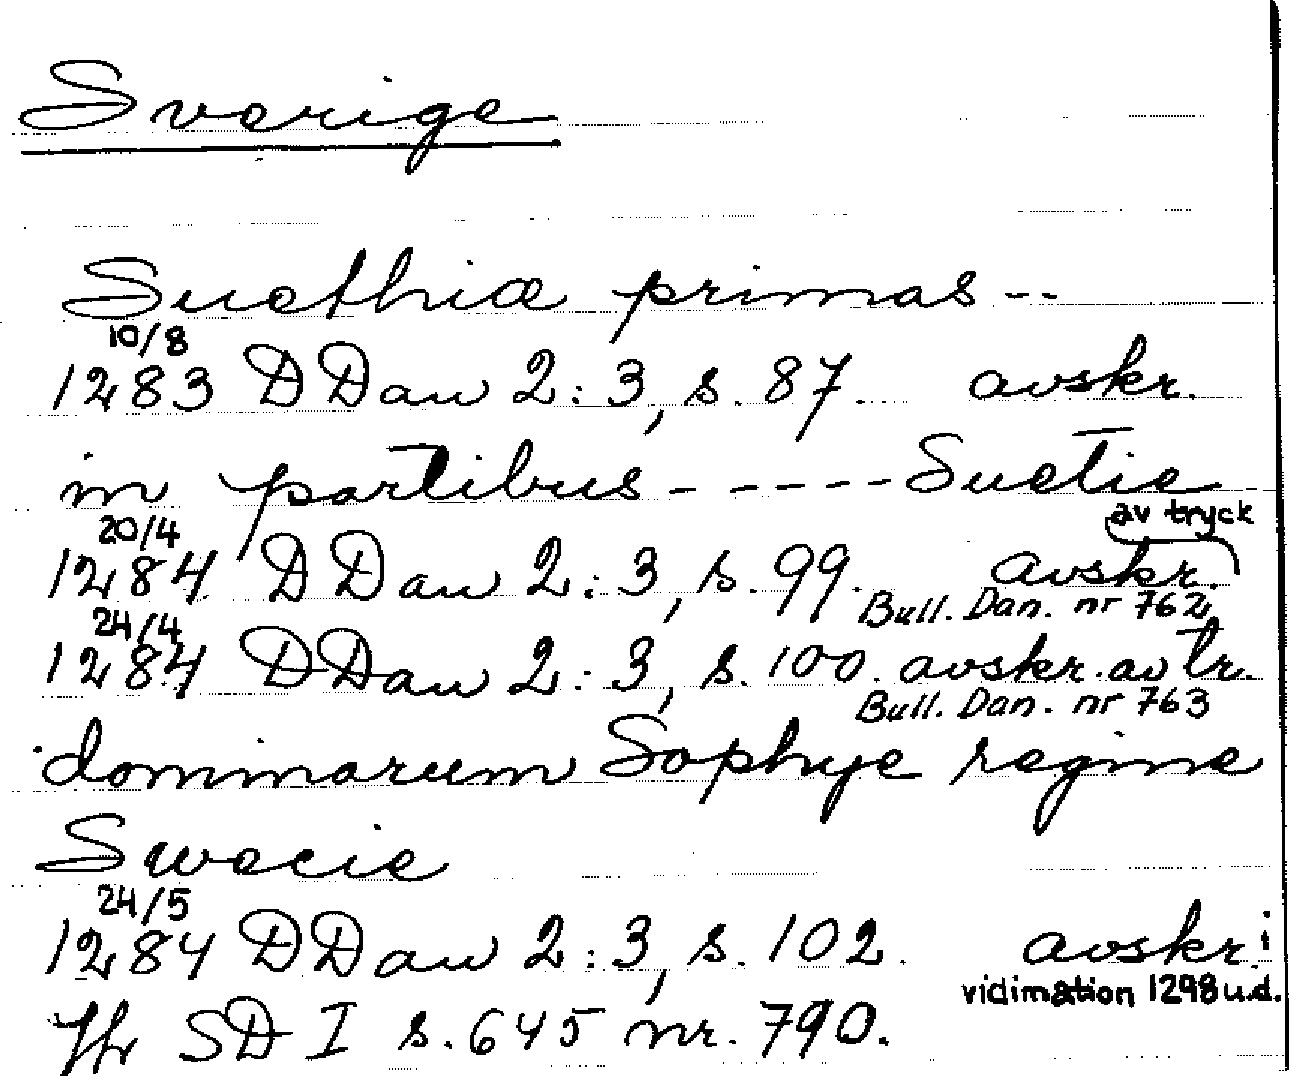 Sverige
Suethiæ primas --
10/8
1283 DDan 2:3, s. 87. avskr.
in partibus - - - - - Suetie
20/4 av tryck
1284 DDan 2:3, s. 99. avskr.
Bull. Dan. nr 762.
24/4
1284 DDan 2:3, s. 100. avskr. av tr.
Bull. Dan. nr 763
dominarum Sophye regine
Swecie
24/5
1284 DDan 2:3, s. 102. avskr i
vidimation 1298 u.d.
Jfr SD I s. 645 nr. 790.